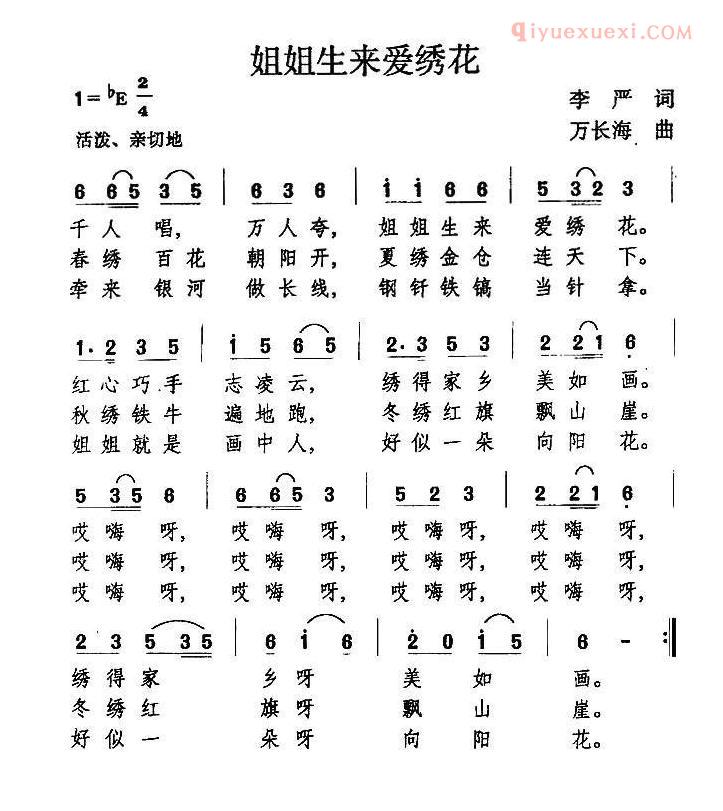 qiyuexuexi.com
姐姐生来爱绣花
1=♭E 2/4
李严 词
活泼、亲切地
万长海 曲
6 6 6 5 3 5 | 6 3 6 | i i 6 6 | 5 3 2 3
千人唱, 万人夸, 姐姐生来 爱绣花。
春绣百花 朝阳开, 夏绣金仓 连天下。
牵来银河 做长线, 钢钎铁镐 当针拿。
1· 2 3 5 | i 5 6 5 | 2· 3 5 3 | 2 2 2 1 6
红心巧手 志凌云, 绣得家乡 美如画。
秋绣铁牛 遍地跑, 冬绣红旗 飘山崖。
姐姐就是 画中人, 好似一朵 向阳花。
5 3 5 6 | 6 6 5 3 | 5 2 3 | 2 2 2 1 6
哎嗨呀, 哎嗨呀, 哎嗨呀, 哎嗨呀,
哎嗨呀, 哎嗨呀, 哎嗨呀, 哎嗨呀,
哎嗨呀, 哎嗨呀, 哎嗨呀, 哎嗨呀,
2 3 5 3 5 | 6 i 6 | 2 0 i 5 | 6 - :||
绣得家 乡呀 美如画。
冬绣红 旗呀 飘山崖。
好似一 朵呀 向阳花。